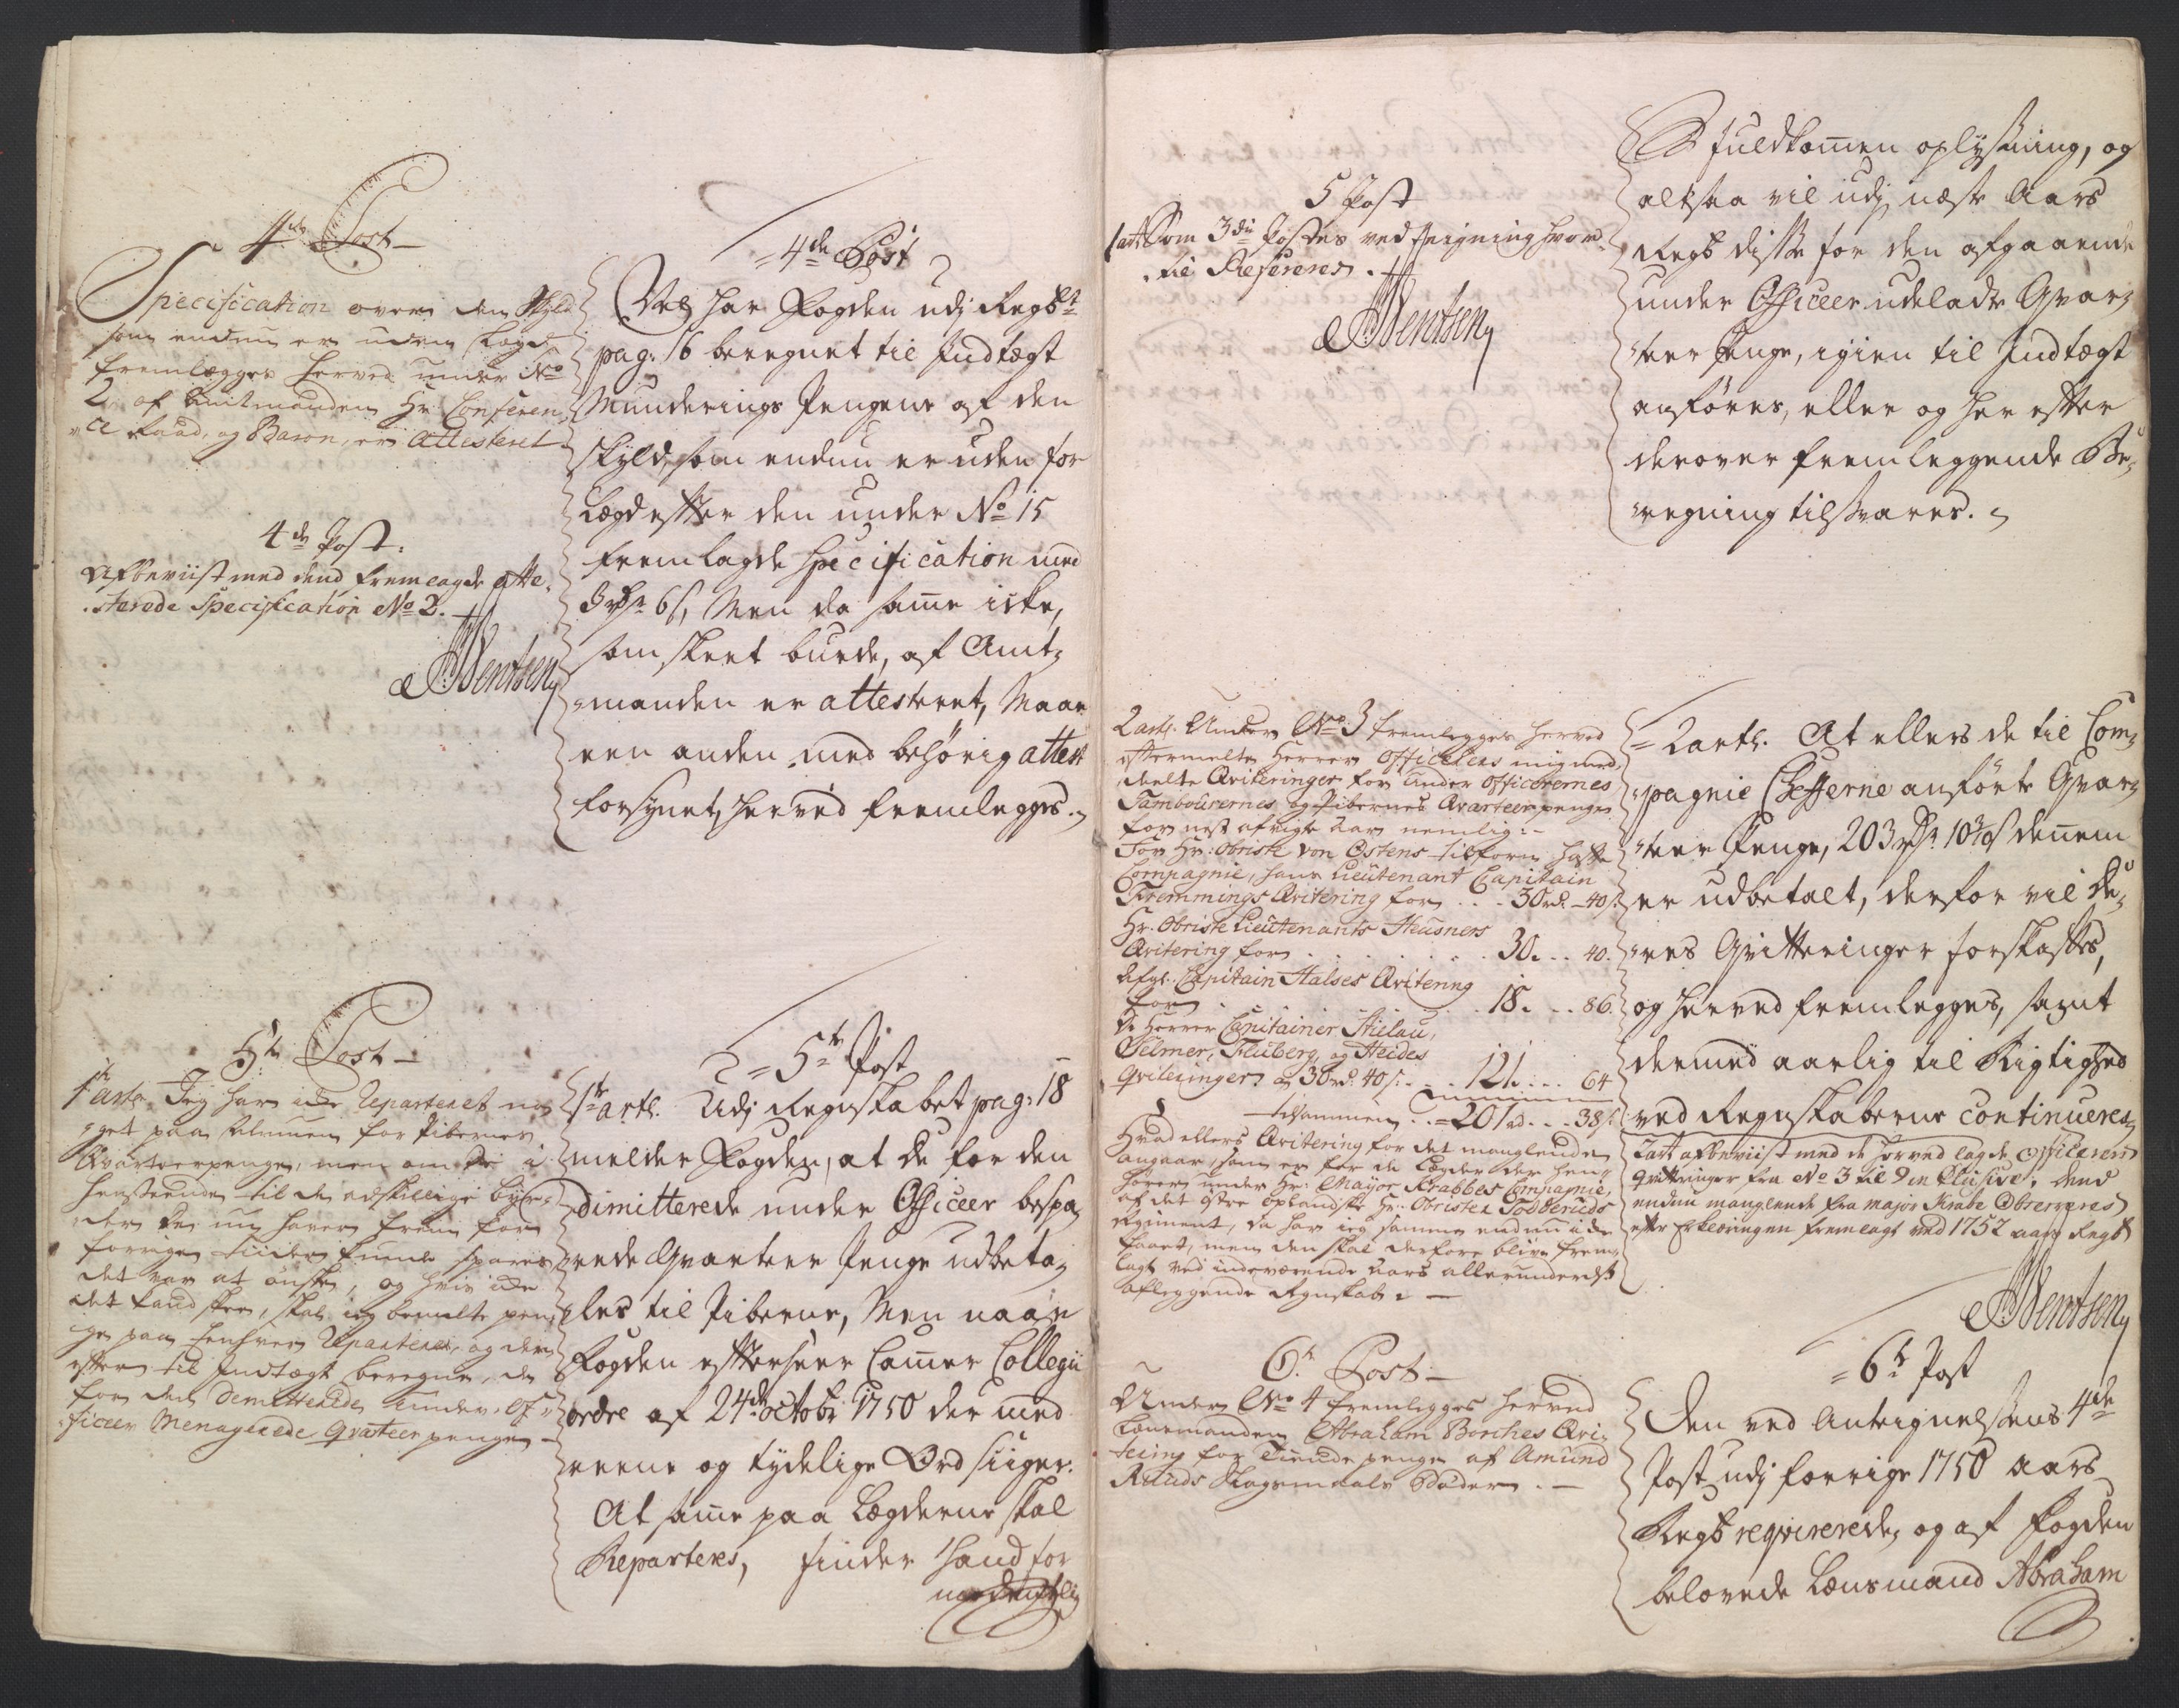 4de Post
Specification over den Skyld
som endnu er uden Lægd
fremlægges herved under No
2 af Amtmanden Hr Conferen„
„ce Raad, og Baron, er Attesteret
4de Post.
Afbeviist med dend fremlagde atte„
„sterede Specification No 2.
Wentsen
5te Post
1ste art. Jeg har icke Reparteret no„
„get paa Almuen for Pibernes
Qvarteerpenge, men om de i
henseende til de adskillige Byr„
„der
forrige Tiider kunde spares
det var at ønske, og hvis icke
det kand skee, skal ieg bemelte pen„
„ge paa
efter til Indtægt beregne, de
for den Demitterede under Of„
„ficeer Menagerede Qvarteer penge
=4de Post
Vel har Fogden udj Regsk:t
pag: 16 beregnet til Indtægt
Munderings Pengene af den
skyld, som endnu er uden for
Lægd efter den under No 15
fremlagde Specification med
3 rdr 6 s, Men da samme icke,
som skeet burde, af Amt„
„manden er attesteret, Maae
een anden med behörig attest
forsynet, herved fremlegges.
=5te Post
1ste artl. Udj Regnskabet pag: 18
melder Fogden, at de for den
dimitterede under Officeer bespa„
„rede Qvarteer Penge udbeta„
„les til Piberne, Men naar
Fogden efterseer Cammer Collegii
ordre af 24de octobr 1750 der med
reene og tydelige Ord siiger.
At samme paa Lægderne skal
Reparteres, finder hand for
nødentlig
5 Post
1 art. Som 3die Postes ved tegning hvor„
„til Refereres.
Wentsen
2 art. Under No 3 fremlegges herved
efftermelte Herrer Officeleres mig med„
„deelte Qviteringer for Under officerernes
Tambourernes og Pibernes Qvarteerpenge
for nest afvigte Aar nemlig:
For Hr. Obriste von Ostens tilforn hafte
Compagnie, hans Lieutenant Capitain
Fremmings Qvitering for . . . 30 rd. 40 s.
Hr. Obriste Lieutenants Heusners
Qvitering for . . . 30. . . 40.
Afg. Capitain Halses Qvitering
for . . . 18. . . 86.
De Herrer Capitainer Stielau,
Selmer, Fluberg, og Heides
Qviteringer a 30 rd. 40 s. . . 121. . . 64
tilsammen . . = 201 rd. . . 38 s.
Hvad ellers Qvitering for det manglende
angaar, som er for de Lægder der hen„
hører under Hr. Mayor Krabbes Compagnie,
af det østre oplandske Hr. Obrister Todderuds
Regiment, da har ieg samme endnu icke
faaet, men den skal derfore blive frem„
lagt ved indeværende Aars allerunderdst
aflæggende Regnskab.
6te Post
Under No 4 fremlegges herved
Lensmanden Abraham Borches Qvi„
tering for Tiende penge af Amund
Ruuds Skogsmaals Bøder.
fuldkommen oplysning, og
altsaa vil udj næste Aars
Regsk disse for den afgaaende
under Officeer udeladte Qvar„
„teer Penge, igien til Indtægt
anföres, eller og her efter
derover fremleggende Be„
„regning tilsvares.
=2 artl. At ellers de til Com„
„pagnie Chefferne anförte Qvar„
„teer Penge, 203 rdr 10 3/10 s dennem
er udbetalt, derfor vil De„
„res Qvitteringer forskaffes,
og herved fremlegges, samt
dermed aarlig til Rigtighed
ved Regnskaberne continueres
2 art afbeviist med de herved lagde officerers
qvitteringer fra No 3 til 9 inclusive, dend
endnu manglende fra Major Krabe Observeres
efter Erklæringen fremlagt ved 1752 aars Regsk
Wentsen
=6te Post
Den ved Antegnelsens 4de
Post udj forrige 1750 Aars
Regsk reqvirerede, og af Fogden
belovede Lænsmand Abraham